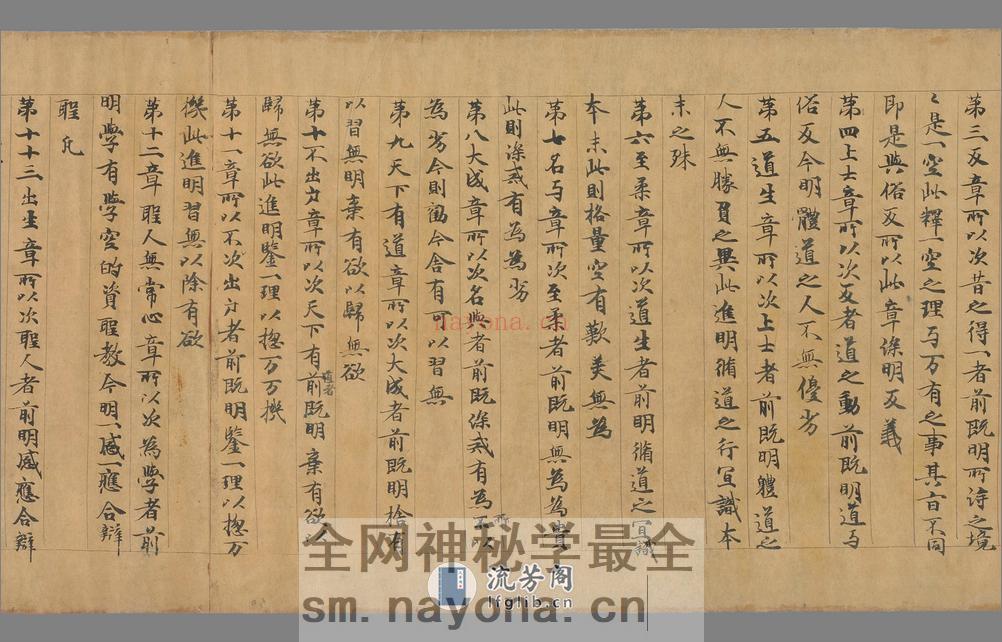 第三反章所以次昔之得一者前既明所詩之境
〻是一空此釋一空之理与万有之事其旨不同
即是與俗反所以此章條明反義
第四上士章所以次反者道之動前既明道与
俗反今明體道之人不無優劣
第五道生章所以次上士者前既明體道之
人不無勝負之異此進明脩道之行宜識本
末之殊
第六至柔章所以次道生者前明脩道之宜識
本末此則格量空有歎美無為
第七名与章所次至柔者前既明無為為貴
此則滌或有為為劣
第八大成章所以次名與者前既滌或有為
為劣今則勸令舍有可以習無
第九天下有道章所以次大成者前既明捨有
以習無明棄有欲以歸無欲
第十不出户章所以次天下有道者前既明棄有欲以
歸無欲此進明鑒一理以揔万機
第十一章所以不次出户者前既明鑒一理以揔万
機此進明習無以除有欲
第十二章聖人無常心章所以次為學者前
明學有學空的資聖教今明一感一應合辯
聖凡
第十十三出生章所以次聖人者前明感應合辯
nayona.cn
全网神秘学最全
流芳阁
lfglib.cn
sm.nayona.cn